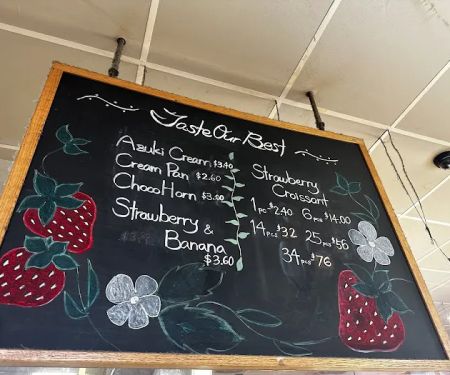 Taste Our Best
Azuki Cream $3.40
Cream Pan $2.60
Choco Horn $3.00
Strawberry &
Banana
$3.60
Strawberry
Croissant
1pc $2.40 6pcs $14.00
14pcs $32 25pcs $56
34pcs $76